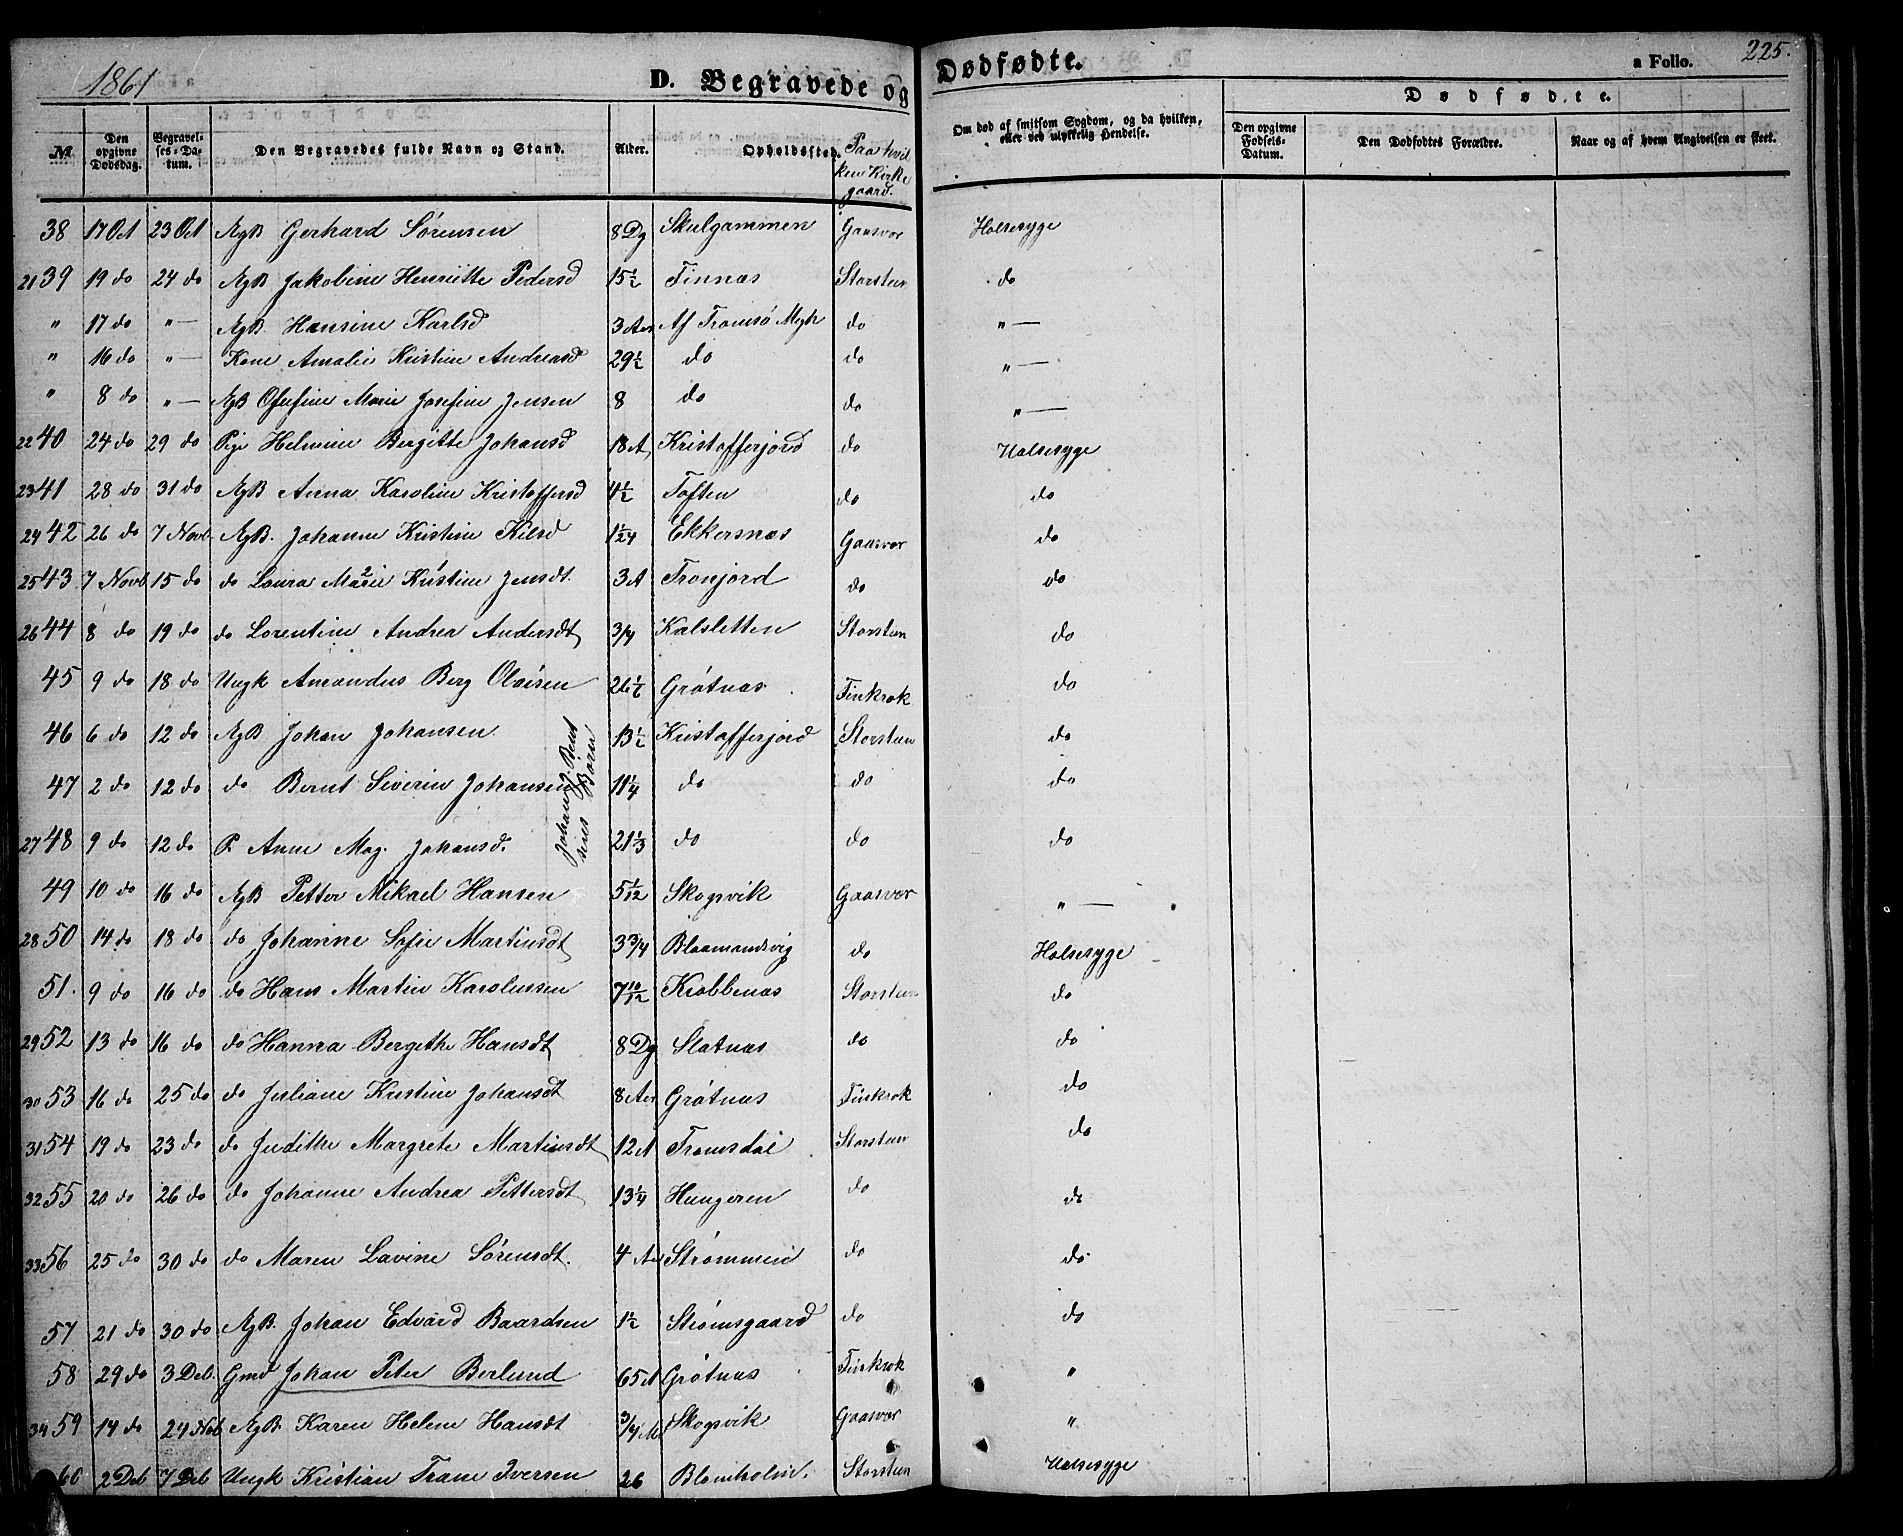 1861 D. Begravede og Dødfødte. a Folio. 225.
№ Den opgivne Dødsdag. Begravelses-Datum. Den Begravedes fulde Navn og Stand. Alder. Opholdssted. Paa hvilken Kirkegaard. Om død af smitsom Sygdom, og da hvilken, eller ved ulykkelig Hendelse. Dødfødte. Den opgivne Fødsels-Datum. Den Dødfødtes Forældre. Naar og af hvem Angivelsen er skeet.
38 17 Oct 23 Oct AgB Gerhard Sørensen 8 Dg Skulgammen Gaasvær Halsesyge
21 39 19 do 24 do AgB Jakobine Henriette Pedersd 15½ Finnæs Storsten do
" 17 do "— AgB. Hansine Karlsd 3 Aar Af Tromsø Mgh do "—
" 16 do "— Kone Amalie Kristine Andreasd 29½ do do "—
" 8 do "— AgB Olufine Marie Josefine Jensen 8 do do "—
22 40 24 do 29 do Pige Helmine Bergitte Johansd 18 A Kristofferjord do Halsesyge
23 41 28 do 31 do AgB Anna Karoline Kristoffersd 4½ Toften do do
24 42 26 do 7 Novb. AgB. Johanne Kristine Kilsd 1/24 Ekkersnæs Gaasvær do
25 43 7 Novb 15 do do Laura Marie 2 Kristine Jensdt. 3 A Tronjord do do
26 44 8 do 19 do do Lorentine Andrea Andersdt 3/4 Kalsletten Storsten do
45 9 do 18 do Ungk Amandus Berg Olaisen 26½ Grøtnæs Finkrok do
46 6 do 12 do AgB Johan Johansen 13½ Kristofferjord Storsten do
47 2 do 12 do do Bernt Siverin Johansen 11¼ do do do
27 48 9 do 12 do P. Anne Mag. Johansd. 21⅓ do do do
Johan
Børn
49 10 do 16 do AgB Petter Mikael Hansen 5 1/12 Skogsvik Gaasvær "—
28 50 14 do 18 do do Johanne Sofie Martinsdt 3¾ Blaamandsvig do Halsesyge
51. 9 do 16 do do Hans Martin Karolussen 7 10/12 Krabbenæs Storsten do
29 52 13 do 16 do do Hanna Bergithe Hansdt 8 Dg Slatnæs do do
30 53 16 do 25 do do Juliane Kristine Johansdt 8 Aar Grøtnæs Finkrok do
31 54 19 do 23 do do Judithe Margrete Martinsdt 12 A Tromsdal Storsten do
32 55 20 do 26 do do Johanne Andrea Pettersdt 13¼ Hungeren do do
33 56 25 do 30 do do Maren Lavine Sørensdt. 4 Aar Strømmen do do
57 21 do 30 do AgB. Johan Edvard Baardsen 1½ Strømsgaard do do
58 29 do 3 Deb. Gmd Johan Peter Berlund 65 A Grøtnæs Finkrok "
34 59 14 do 24 Nob AgB. Karen Helene Hansdt 3/4 M Skogsvik Gaasvær "
60 2 Deb 7 Deb Ungk Kristian Trane Iversen 26 Blomholm. Storsten Halsesyge